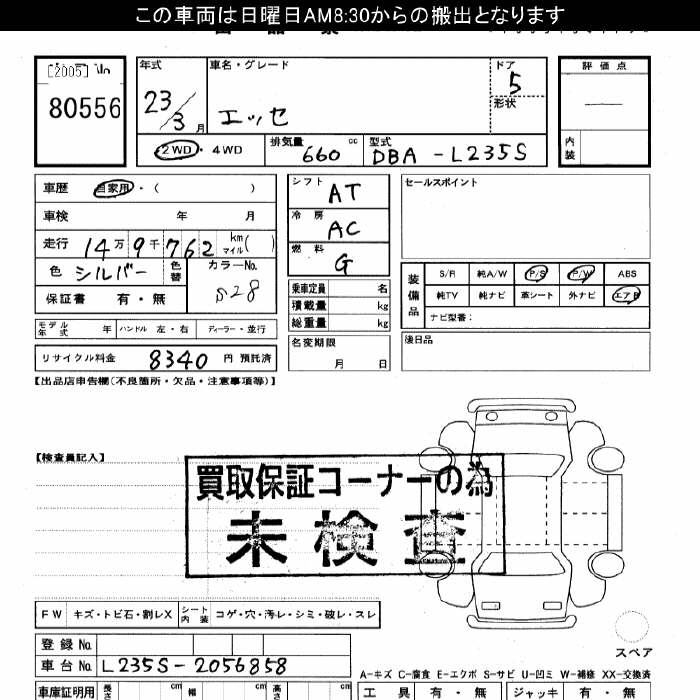 この車両は日曜日AM8:30からの搬出となります
[2005]
80556
年式
23/3月
車名・グレード
エッセ
ドア
5
形状
評価点
内装
2WD・4WD
排気量
660cc
型式
DBA-L235S
車歴 自家用・( )
車検 年 月
走行 14万9千762 km マイル( )
色 シルバー 色替
カラーNo.
S28
保証書 有・無
モデル年式 年 ハンドル 左・右 ディーラー・並行
リサイクル料金 8340円 預託済
シフト
AT
冷房
AC
燃料
G
乗車定員 名
積載量 kg
総重量 kg
名変期限
月 日
セールスポイント
装備品
S/R 純A/W P/S P/W ABS
純TV 純ナビ 革シート 外ナビ エアB
ナビ型番:
後日品
【出品店申告欄(不良箇所・欠品・注意事項等)】
【検査員記入】
買取保証コーナーの為
未検査
FW キズ・トビ石・割レX シート内装 コゲ・穴・汚レ・シミ・破レ・スレ
スペア
登録No.
車台No. L235S-2056858
A-キズ C-腐食 E-エクボ S-サビ U-凹ミ W-補修 XX-交換済
車庫証明用 長さ cm 幅 cm 高さ cm
工具 有・無 ジャッキ 有・無